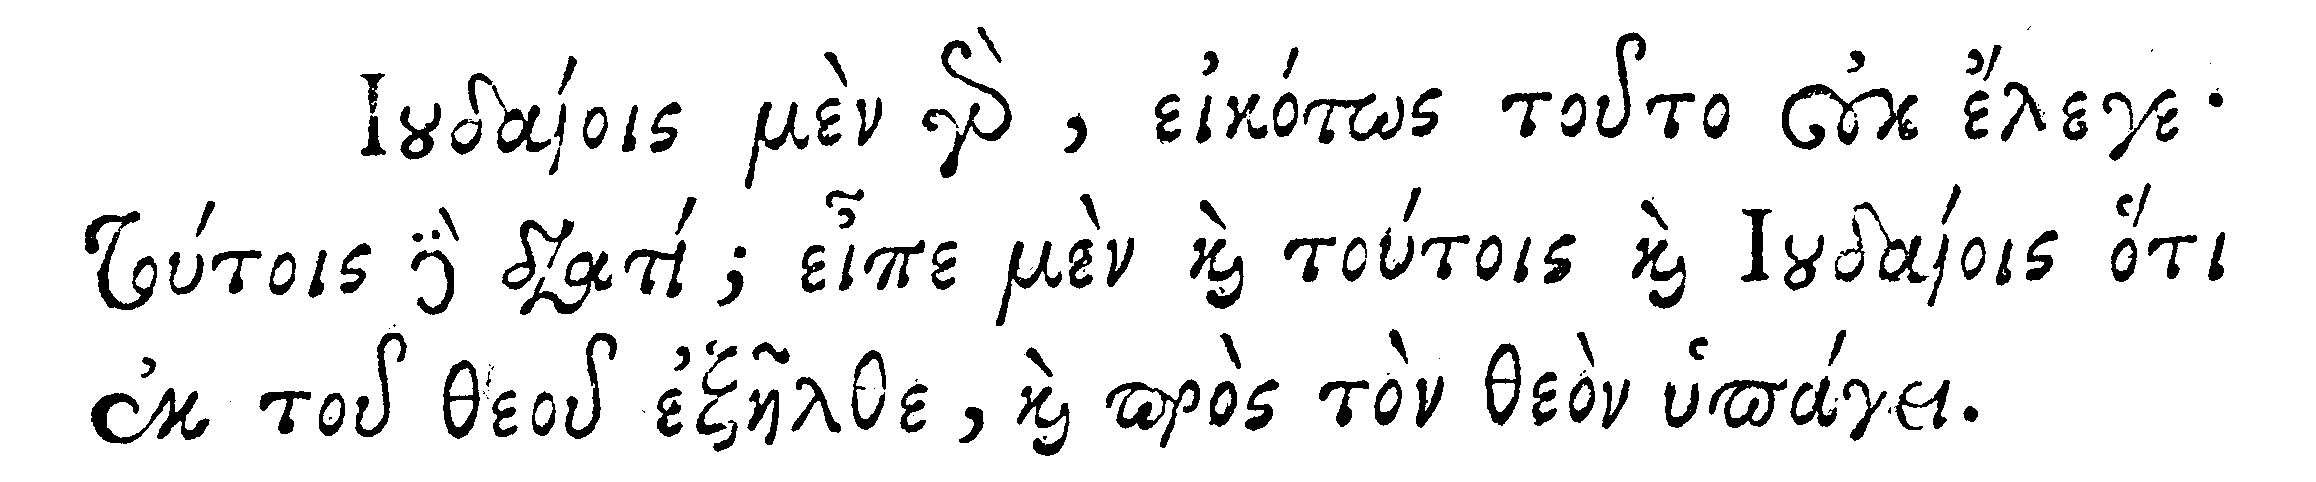 Ιουδαίοις μὲν γὰρ, εἰκότως τοῦτο οὐκ ἔλεγε·
τούτοις δὲ διατί; εἶπε μὲν καὶ τούτοις καὶ Ιουδαίοις ὅτι
ἐκ τοῦ θεοῦ ἐξῆλθε, καὶ πρὸς τὸν θεὸν ὑπάγει.